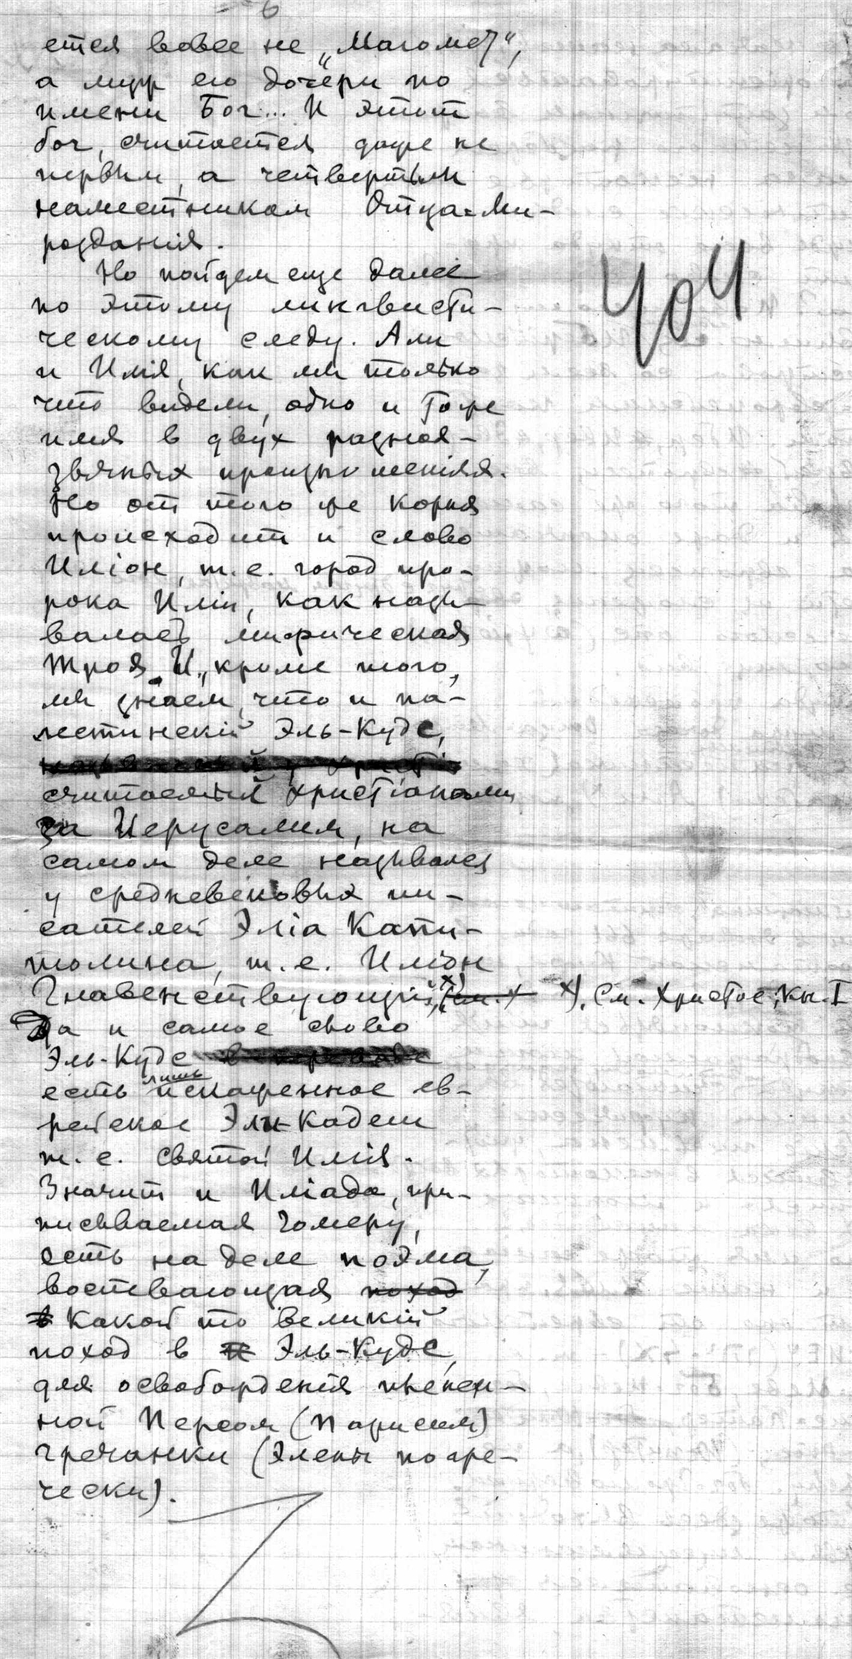 6
ется вовсе не „Магомет",
а муж его дочери по
имени Бог... И этот
бог, считается даже не
первым, а четвертым
наместником Отца-Ми-
роздания.
Но пойдем еще далее
по этому лингвисти-
ческому следу. Али
и Илія, как мы только
что видели, одно и тоже
имя в двух разноя-
зычных произношеніях.
Но от того же корня
происходит и слово
Иліон, т.е. город про-
рока Иліи, как назы-
валась мифическая
Троя. И, кроме того,
мы знаем, что и па-
лестинскій Эль-Кудс,
считаемый христіанами
за Иерусалим, на
самом деле назывался
у средневековых пи-
сателей Эліа Капи-
толина, т.е. Иліон
Главенствующій, x) x). См. Христос, кн. I
Да и самое слово
Эль-Кудс
есть лишь искаженное ев-
рейское Эли-Кадеш
т.е. святой Илія.
Значит и Иліада, при-
писываемая Гомеру,
есть на деле поэма,
воспевающая поход
в Какой то великій
поход в Эль-Кудс,
для освобожденія пленен-
ной Персом (Парисем)
гречанки (Элены по гре-
чески).
404